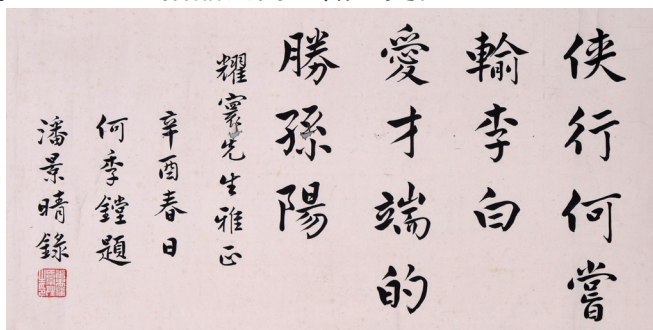 俠行何嘗
輸李白
愛才端的
勝孫陽
耀寰先生雅正
辛酉春日
何季鏜題
潘景晴錄